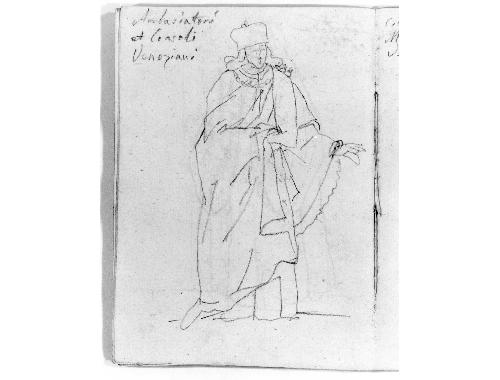 Ambasiatori
et Consoli
Veneziani